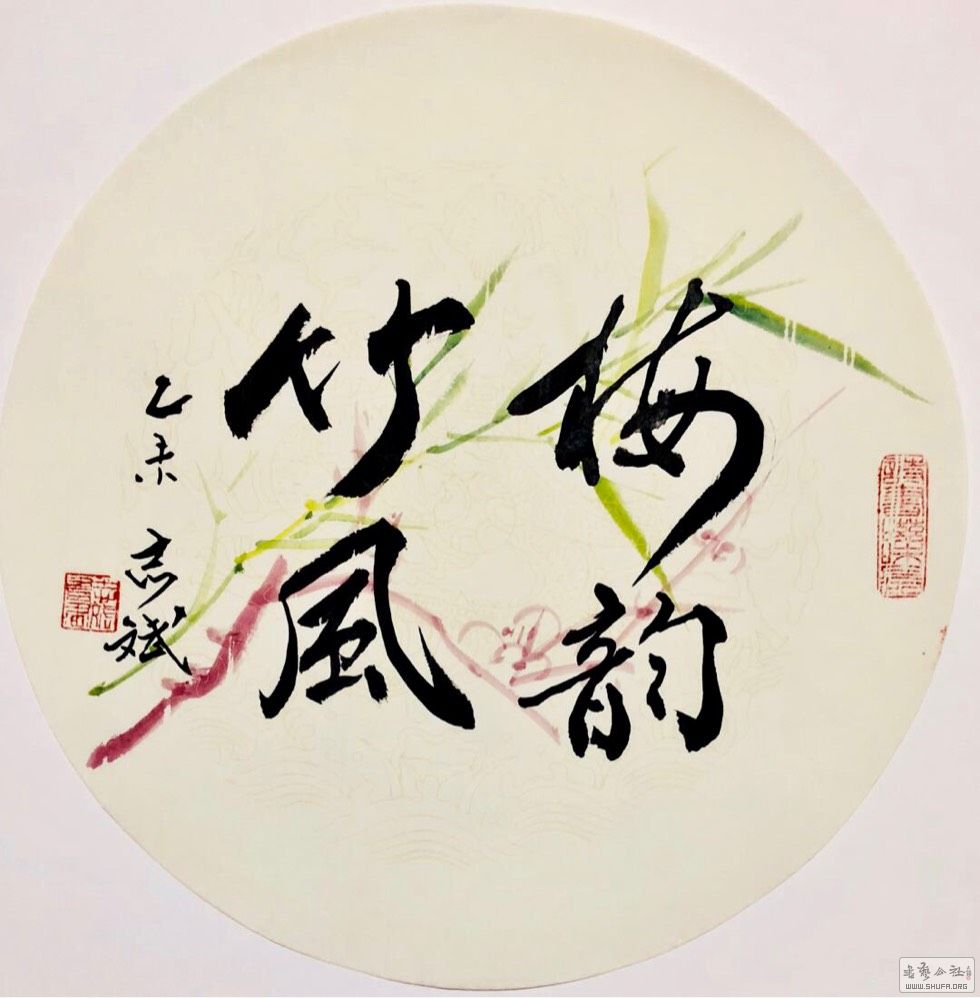 梅韵
竹風
乙未 志斌
書藝公社
WWW.SHUFA.ORG